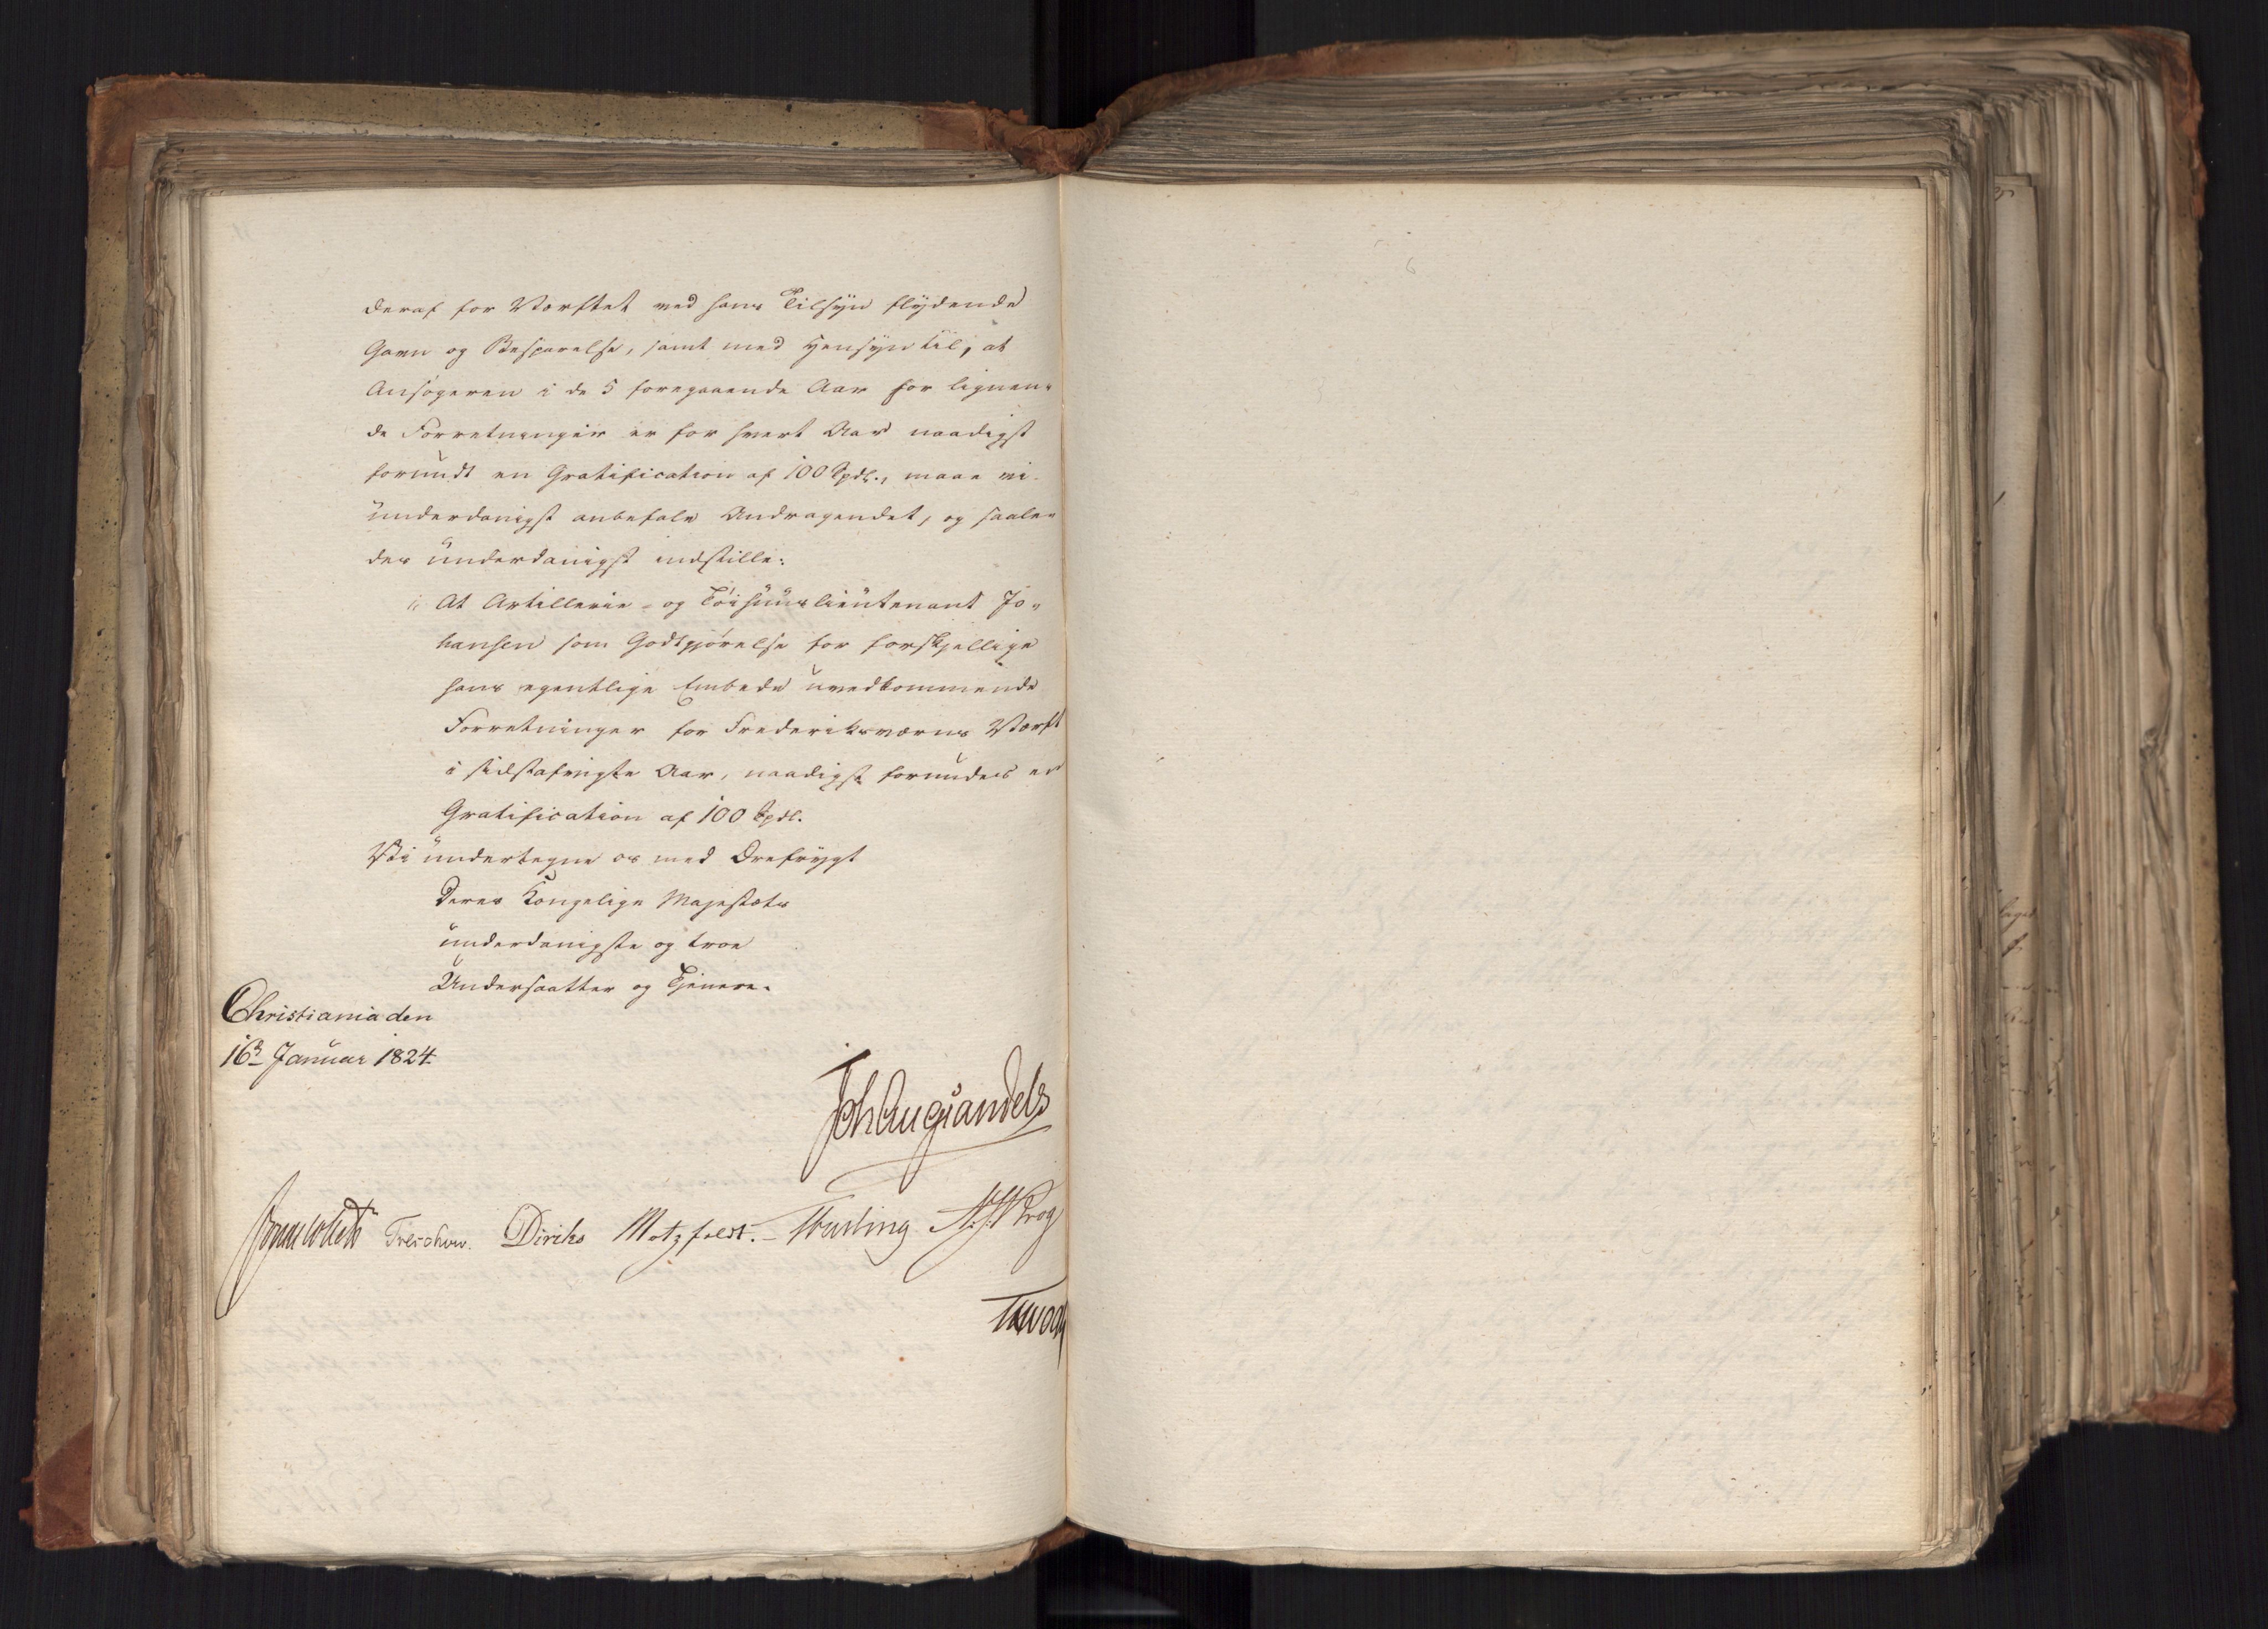 deraf for Værftet ved hans Tilsyn flydende
Gavn og Besparelse, samt med Hensyn til, at
Ansøgeren i de 5 foregaaende Aar for lignen-
de Forretninger er for hvert Aar naadigst
forundt en Gratification af 100 Spdl., maae vi
underdanigst anbefale Andragendet, og saale-
des underdanigst indstille:
At Artillerie- og Tøihuuslieutenant Jo-
hansen som Godtgjørelse for forskjellige
hans egentlige Embede uvedkommende
Forretninger for Frederiksværns Værft
i sidstafvigte Aar, naadigst forundes en
Gratification af 100 Spdl.
Vi undertegne os med Ærefrygt
Deres Kongelige Majestæts
underdanigste og troe
Undersaatter og Tjenere.
Christiania den
16d Januar 1824.
Joh Aug Sandels
Sommerhielm Treschow. Diriks Motzfeldt. Fasting A. S. Krog